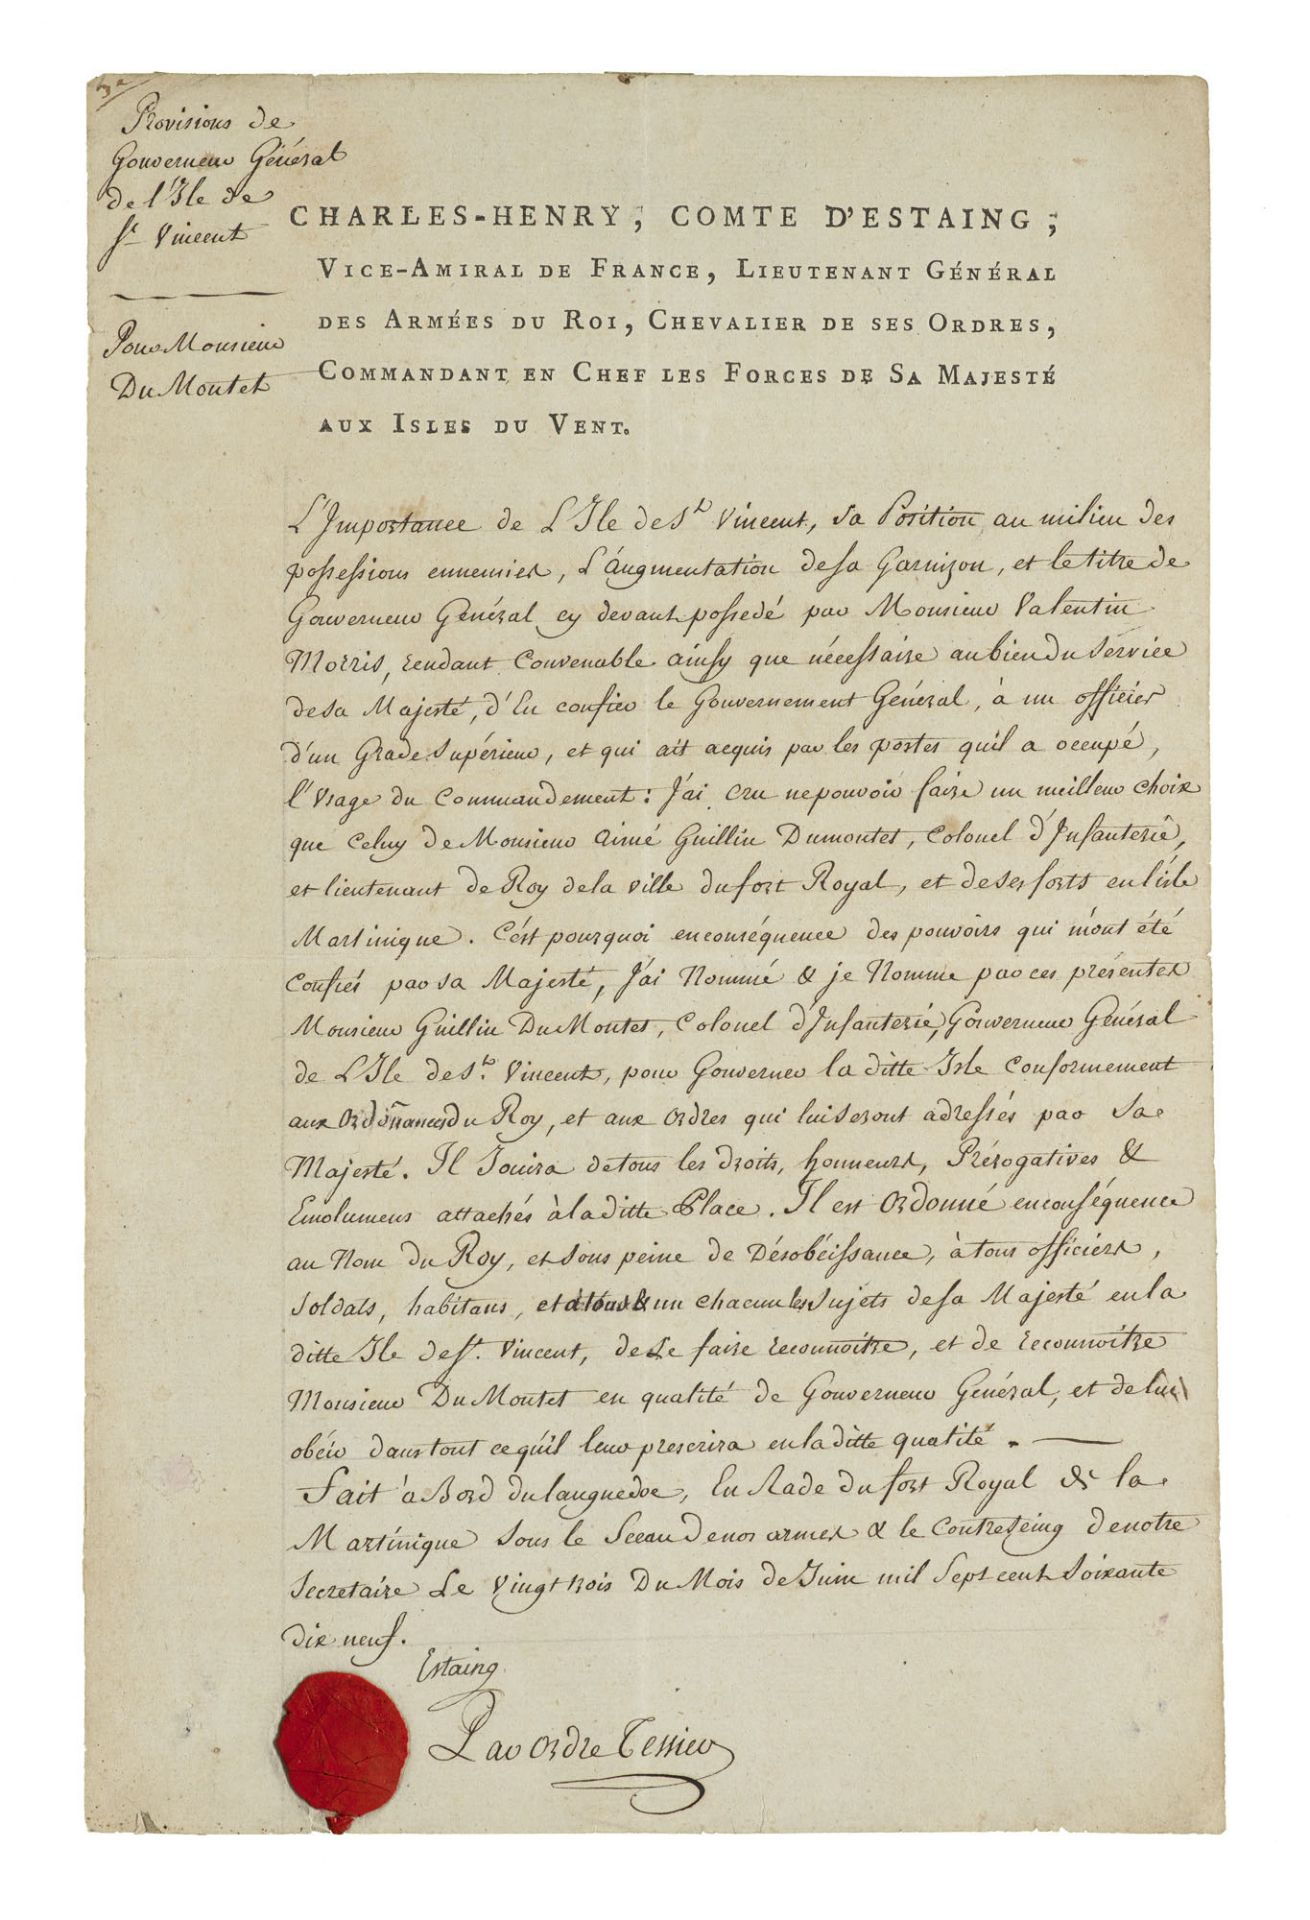 3e
Provisions de
Gouverneur Général
de l'Ile de
St Vincent
Pour Monsieur
Du Montet
CHARLES-HENRY, COMTE D'ESTAING;
VICE-AMIRAL DE FRANCE, LIEUTENANT GÉNÉRAL
DES ARMÉES DU ROI, CHEVALIER DE SES ORDRES,
COMMANDANT EN CHEF LES FORCES DE SA MAJESTÉ
AUX ISLES DU VENT.
L'Importance de L'Ile de St Vincent, sa Position au milieu des
possessions ennemies, L'augmentation de sa Garnizon, et le titre de
Gouverneur Général cy devant possedé par Monsieur Valentin
Morris, rendant Convenable ainsy que nécessaire au bien du Service
de sa Majesté, d'En confier le Gouvernement Général, à un officier
d'un Grade Supérieur, et qui ait acquis par les postes qu'il a occupé,
l'Usage du Commandement: J'ai cru ne pouvoir faire un meilleur choix
que Celuy de Monsieur Aimé Guillin Dumontet, Colonel d'Infanterie,
et lieutenant de Roy de la ville du fort Royal, et de ses forts en l'isle
Martinique. C'est pourquoi en conséquence des pouvoirs qui m'ont été
Confiés par sa Majesté, J'ai Nommé & je Nomme par ces présentes
Monsieur Guillin Du Montet, Colonel d'Infanterie, Gouverneur Général
de L'Ile de St. Vincent, pour Gouverner la ditte Isle Conformement
aux Ordoñances du Roy, et aux Ordres qui lui seront adressés par Sa
Majesté. Il Jouira de tous les droits, honneurs, Prérogatives &
Emolumens attachés à la ditte Place. Il est Ordonné en conséquence
au Nom du Roy, et sous peine de Désobéissance, à tous officiers,
Soldats, habitans, et à tous & un chacun les Sujets de sa Majesté en la
ditte Ile de St. Vincent, de Le faire reconnoitre, et de reconnoitre
Monsieur Du Montet en qualité de Gouverneur Général, et de lui
obéir dans tout ce qu'il leur prescrira en la ditte qualité.
Fait à Bord du Languedoc, En Rade du fort Royal de la
Martinique sous le Sceau de nos armes & le Contreseing de notre
Secretaire Le Vingt trois Du Mois de Juin mil Sept cent Soixante
dix neuf.
Estaing
Par Ordre Tessier